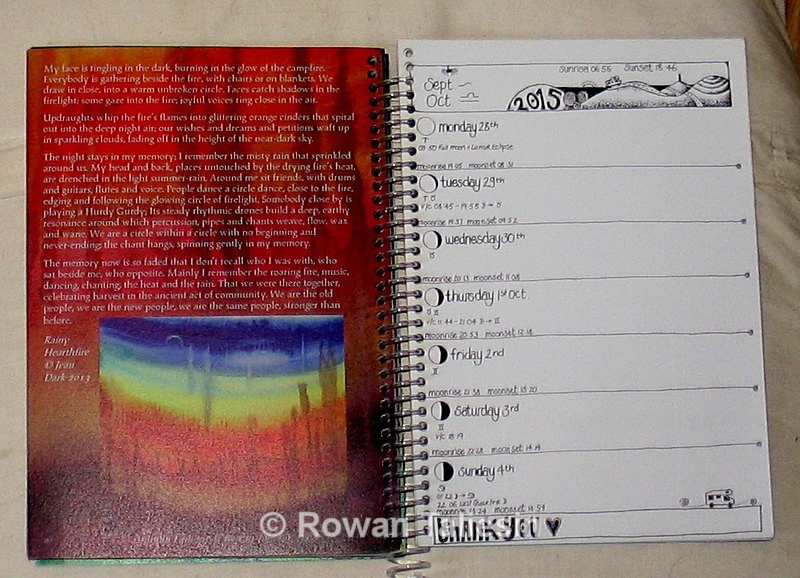 My face is tingling in the dark, burning in the glow of the campfire.
Everybody is gathering beside the fire, with chairs or on blankets. We
draw in close, into a warm unbroken circle. Faces catch shadows in the
firelight; some gaze into the fire; joyful voices ring close in the air.
Updraughts whip the fire's flames into glittering orange cinders that spiral
out into the deep night air; our wishes and dreams and petitions waft up
in sparkling clouds, fading off in the height of the near-dark sky.
The night stays in my memory; I remember the misty rain that sprinkled
around us. My head and back, places untouched by the drying fire's heat,
are drenched in the light summer-rain. Around me sit friends, with drums
and guitars, flutes and voice. People dance a circle dance, close to the fire,
edging and following the glowing circle of firelight. Somebody close by is
playing a Hurdy Gurdy; Its steady rhythmic drones build a deep, earthy
resonance around which percussion, pipes and chants weave, flow, wax
and wane. We are a circle within a circle with no beginning and
never-ending; the chant hangs, spinning gently in my memory.
The memory now is so faded that I don't recall who I was with, who
sat beside me, who opposite. Mainly I remember the roaring fire, music,
dancing, chanting; the heat and the rain. That we were there together,
celebrating harvest in the ancient act of community. We are the old
people, we are the new people, we are the same people, stronger than
before.
Rainy
Hearthfire
© Jean
Dark 2013
Sunrise 06 56 Sunset 18 46
Sept
Oct
2015
monday 28th
Full moon + Lunar Eclipse
moonrise moonset
tuesday 29th
moonrise 19 37 moonset 09 52
wednesday 30th
moonrise 20 13 moonset 11 08
thursday 1st Oct
v/c 11 44 - 21 04
moonrise 20 53 moonset
friday 2nd
moonrise 21 38 moonset
saturday 3rd
v/c 18 19
moonrise moonset 14 14
sunday 4th
22 06 Last Quarter
moonrise moonset 14 59
THANKYOU
© Rowan